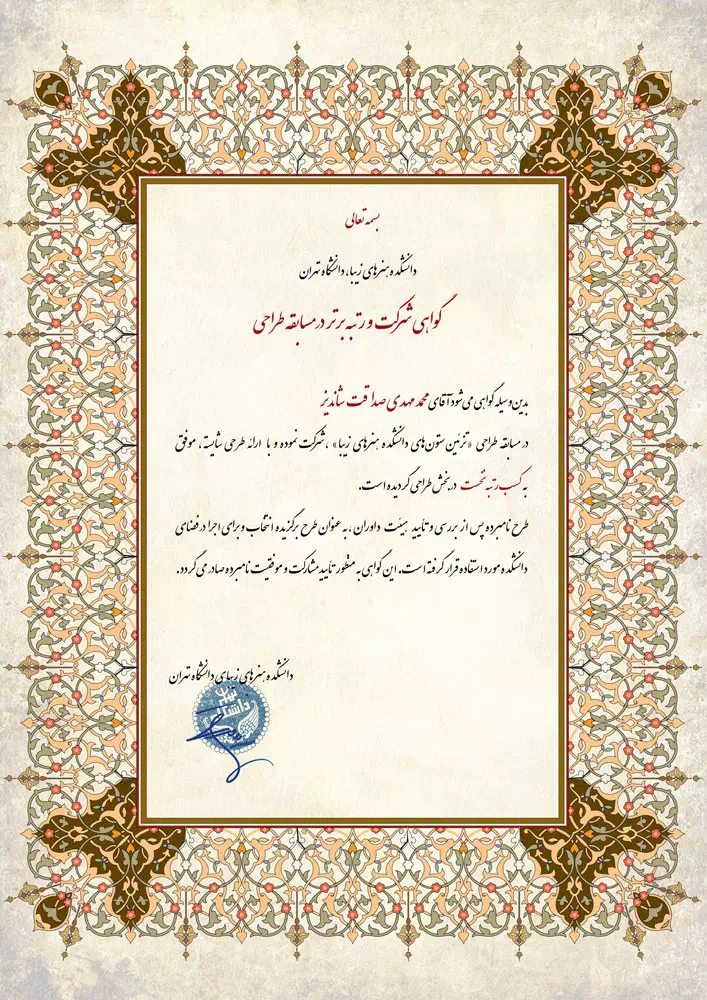 بسمه تعالی
دانشکده هنرهای زیبا، دانشگاه تهران
گواهی شرکت و رتبه برتر در مسابقه طراحی
بدین وسیله گواهی می شود آقای محمد مهدی صداقت شاندیز
در مسابقه طراحی «تزئین ستون های دانشکده هنرهای زیبا»، شرکت نموده و با ارائه طرحی شایسته، موفق
به کسب رتبه نخست در بخش طراحی گردیده است.
طرح نامبرده پس از بررسی و تایید هیئت داوران، به عنوان طرح برگزیده انتخاب و برای اجرا در فضای
دانشکده مورد استفاده قرار گرفته است. این گواهی به منظور تأیید مشارکت و موفقیت نامبرده صادر می گردد.
دانشکده هنرهای زیبای دانشگاه تهران